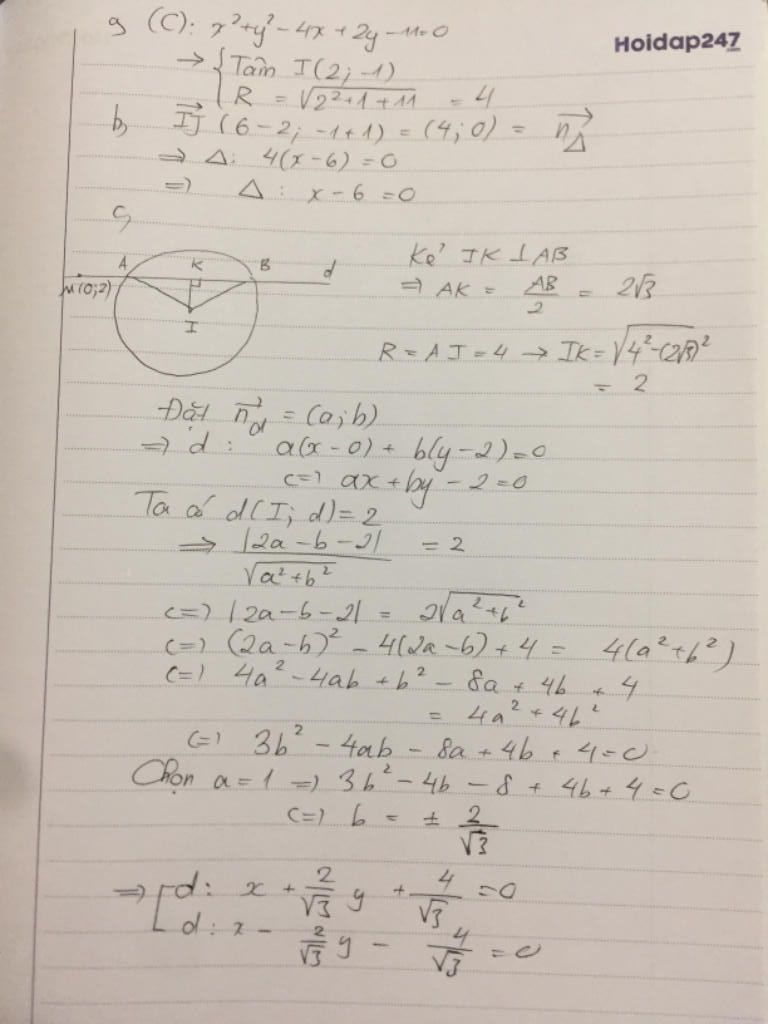 a, (C): x² + y² - 4x + 2y - 11 = 0
Hoidap247
.com
→ { Tâm I(2; -1)
R = √(2² + 1 + 11) = 4
b, IJ→ (6 - 2; -1 + 1) = (4; 0) = n→_Δ
=> Δ: 4(x - 6) = 0
=> Δ: x - 6 = 0
c,
A K B d
M(0; 2)
I
Kẻ IK ⊥ AB
=> AK = AB/2 = 2√3
R = AI = 4 → IK = √(4² - (2√3)²)
= 2
Đặt n→_d = (a; b)
=> d: a(x - 0) + b(y - 2) = 0
<=> ax + by - 2 = 0
Ta có d(I; d) = 2
=> |2a - b - 2| / √(a² + b²) = 2
<=> |2a - b - 2| = 2√(a² + b²)
<=> (2a - b)² - 4(2a - b) + 4 = 4(a² + b²)
<=> 4a² - 4ab + b² - 8a + 4b + 4
= 4a² + 4b²
<=> 3b² - 4ab - 8a + 4b + 4 = 0
Chọn a = 1 => 3b² - 4b - 8 + 4b + 4 = 0
<=> b = ± 2/√3
=> [ d: x + 2/√3 y + 4/√3 = 0
d: x - 2/√3 y - 4/√3 = 0